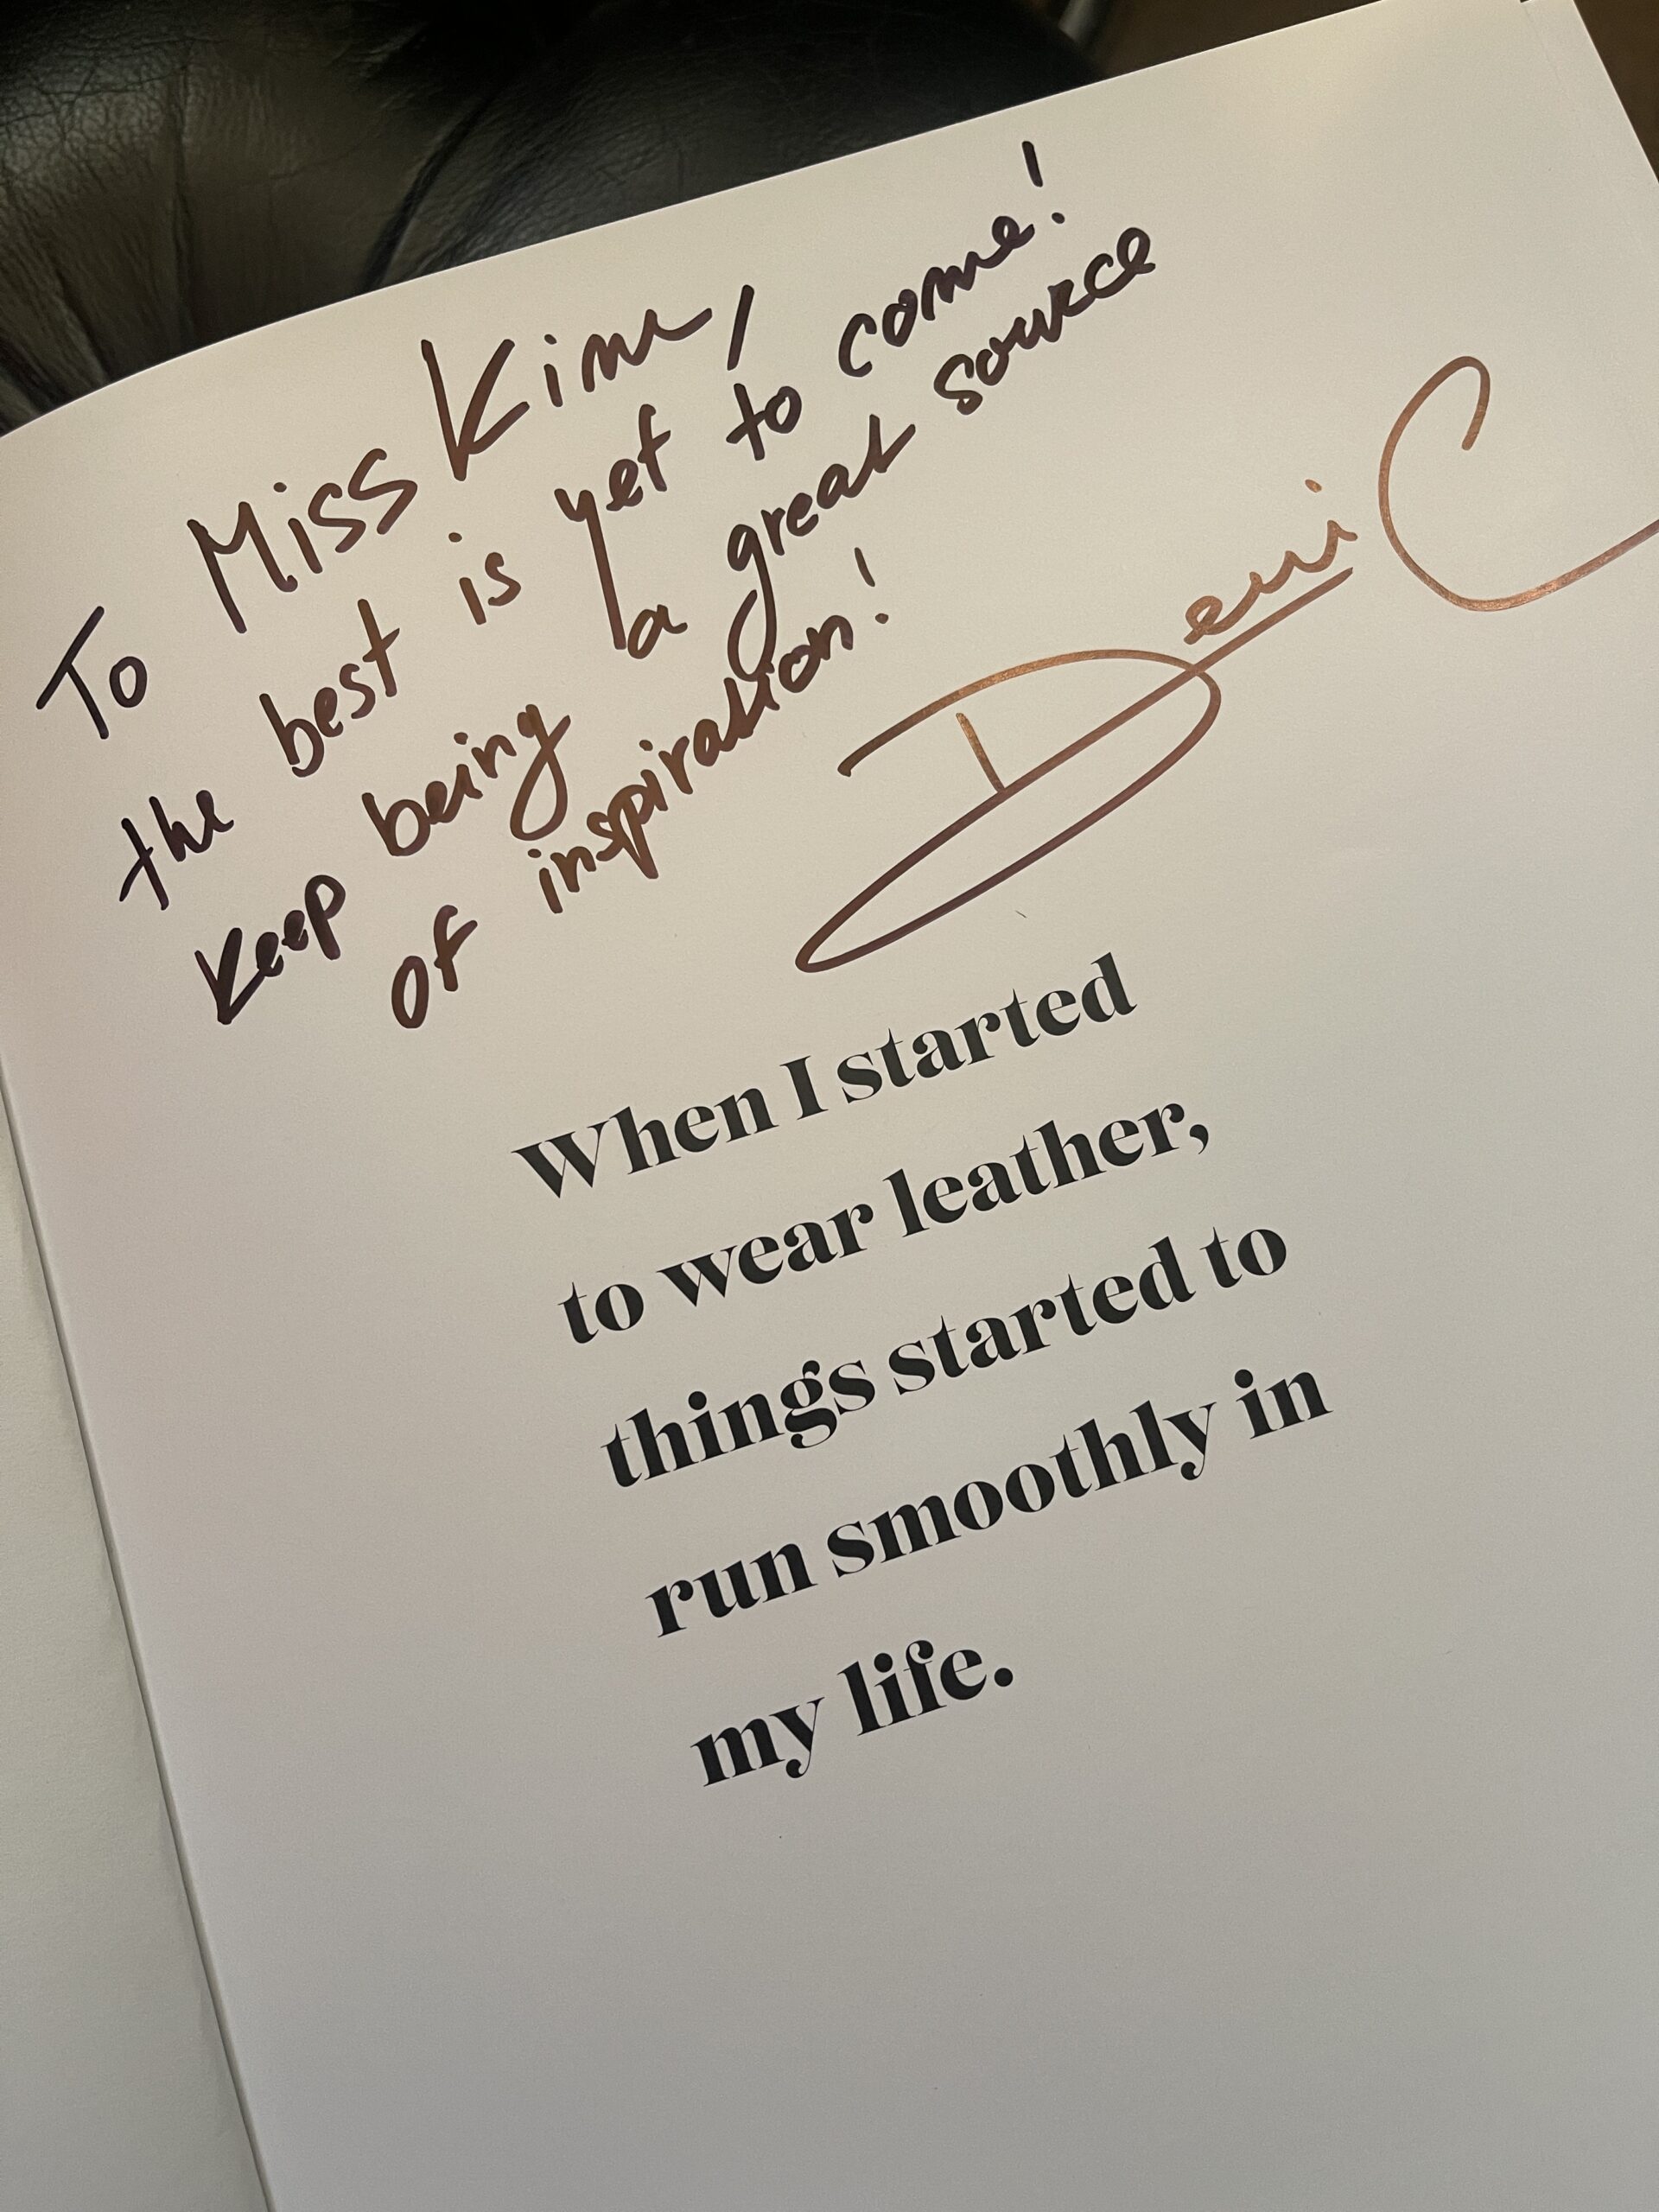 To Miss Kim,
the best is yet to come!
Keep being a great source
of inspiration!
When I started
to wear leather,
things started to
run smoothly in
my life.